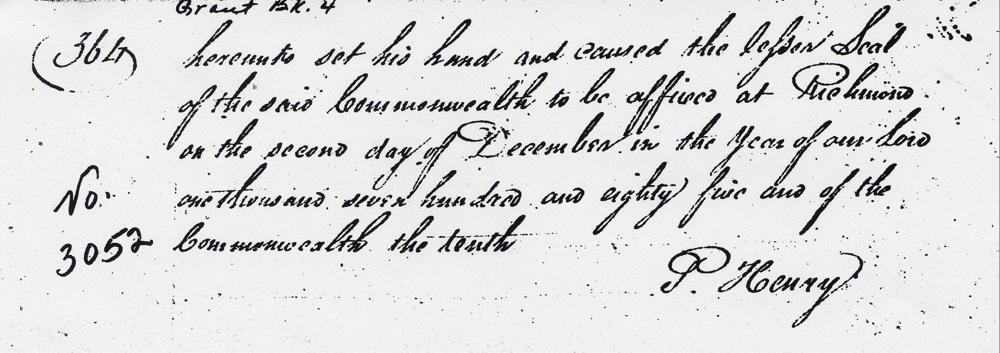 Grant Bk. 4
(364) hereunto set his hand and caused the lesser Seal
of the said Commonwealth to be affixed at Richmond
on the second day of December in the Year of our Lord
one thousand seven hundred and eighty five and of the
No. 3052
Commonwealth the tenth
P. Henry